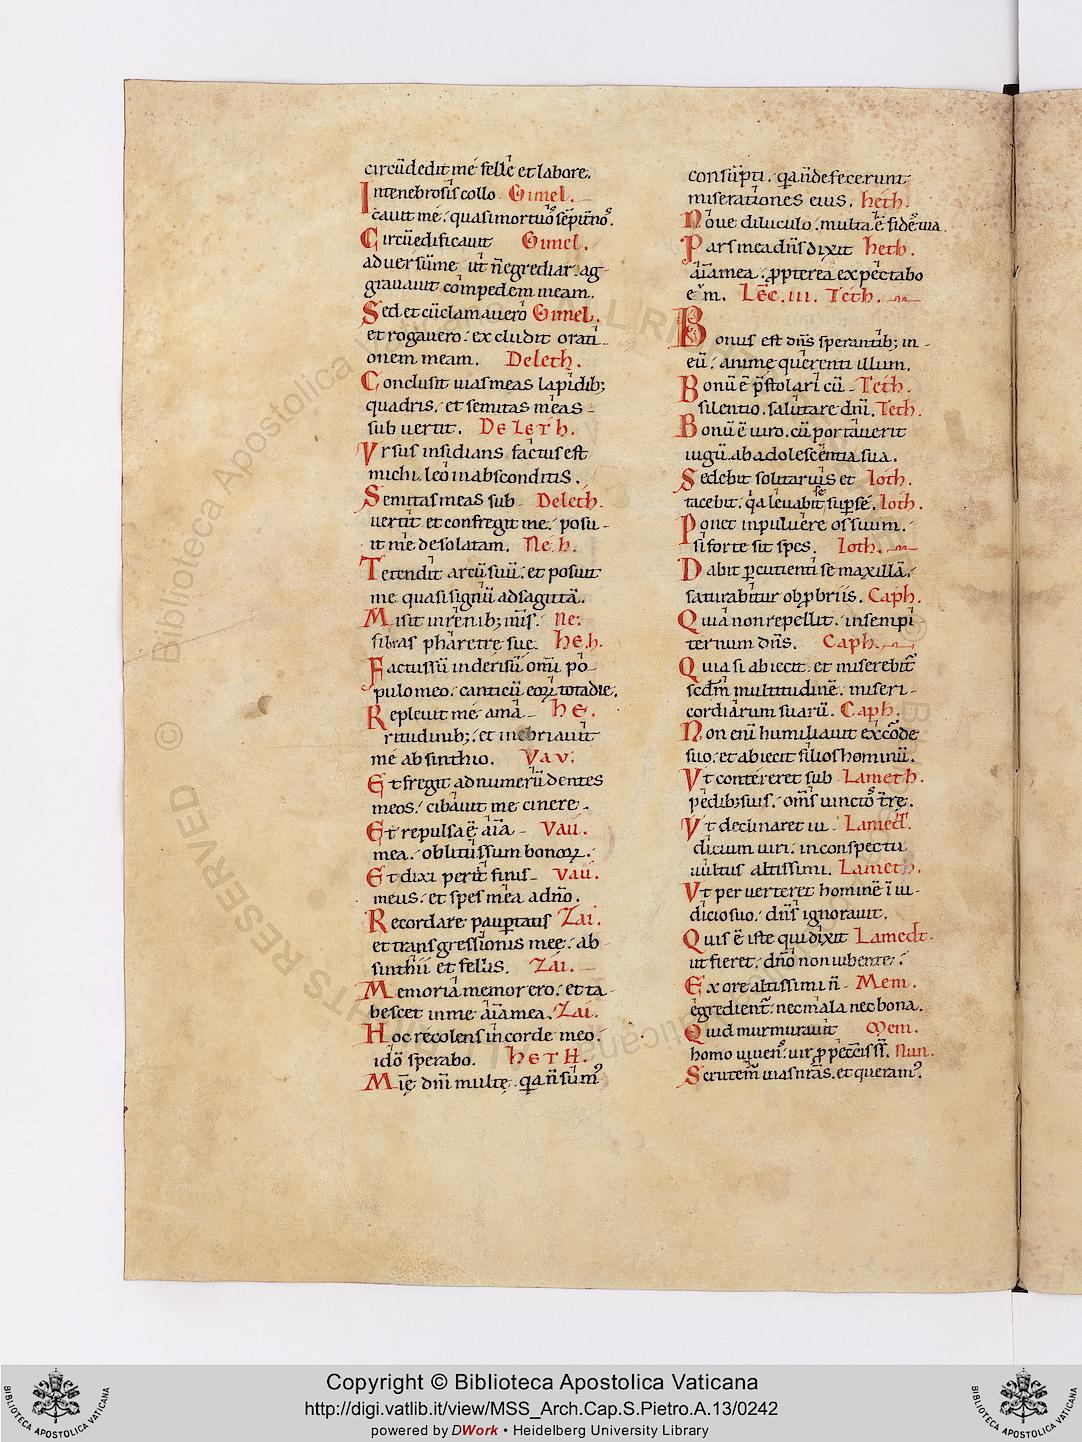 circu̅dedit me felle et labore.
Intenebrosis collo Gimel.
cauit me. quasi mortuos sẽpit̃nos.
Circu̅edificauit Gimel.
aduersu̅me ut n̅egrediar. ag-
grauauit compedem meam.
Sed et cu̅clamauero Gimel.
et rogauero. excludit orati-
onem meam. Deleth.
Conclusit uias meas lapidib;
quadris. et semitas meas
subuertit. Deleth.
Vrsus insidians factus est
michi. leo inabsconditis.
Semitas meas sub Deleth.
uertit et confregit me. posu-
it me desolatam. Heh.
Tetendit arcu̅ suu̅. et posuit
me quasi signu̅ adsagitta̅.
Misit inrenib; m̅is.
filias pharetre sue. heh.
Factussu̅ inderisu̅ om̅i po-
pulo meo. canticu̅ eoꝝ totadie.
Repleuit me ama- he.
ritudinib;. et inebriauit
me absinthio. Vav.
Et fregit adnumeru̅ dentes
meos. cibauit me cinere.
Et repulsa ẽ ai̅a Vau.
mea. oblitussum bonoꝝ.
Et dixi periit finis Vau.
meus. et spes mea adn̅o.
Recordare pauꝑtatis Zai.
et transgressionis mee. ab
sinthii et fellis. Zai.
Memoria memor ero. et ta
bescet inme ai̅a mea. Zai.
Hoc recolens incorde meo.
ido̅ sperabo. heth.
Mi̅ę dn̅i multę. qa n̅ sumus
consu̅pti. qa n̅ defecerunt
miserationes eius. heth.
Noue diluculo. multa ẽ fides tua.
Pars mea dn̅s dixit heth.
ai̅a mea. ꝓpterea expectabo
eum. Lec̅. iii. Teth.
Bonus est dn̅s sperantib; in
eu̅. anime querenti illum.
Bonu̅ ẽ p̅stolari cu̅ Teth.
silentio. salutare dn̅i. Teth.
Bonu̅ ẽ uiro. cu̅ portauerit
iugu̅. ab adolescentia sua.
Sedebit solitarius et Ioth.
tacebit. qa leuabit se supse̅. Ioth.
Ponet inpuluere os suum.
si forte sit spes. Ioth.
Dabit ꝑcutienti se maxilla̅.
saturabitur obꝓbriis. Caph.
Quia non repellit. insempi
ternum dn̅s. Caph.
Quia si abiecit. et miserebit̃
scd̅m multitudine̅. miseri-
cordiarum suaru̅. Caph.
Non eni̅ humiliauit excorde
suo. et abiecit filios hominu̅.
Vt contereret sub Lameth.
pedib; suis. om̅s uinctos t̅re.
Vt declinaret iu Lamed.
dicium uiri. inconspectu
uultus altissimi. Lameth.
Vt peruerteret homine̅ i̅ iu-
dicio suo. dn̅s ignorauit.
Quis ẽ iste qui dixit Lamedt.
ut fieret. dn̅o non iubente.
Ex ore altissimi n̅ Mem.
egredient̃. nec mala nec bona.
Quid murmurauit Mem.
homo uiuens. uir ꝓ pecc̅is s̅s̅. Nun.
Scrutem̃ uias nr̅as. et queramus.
© Biblioteca Apostolica Vaticana ALL RIGHTS RESERVED
Copyright © Biblioteca Apostolica Vaticana
http://digi.vatlib.it/view/MSS_Arch.Cap.S.Pietro.A.13/0242
powered by DWork • Heidelberg University Library
BIBLIOTECA APOSTOLICA VATICANA
BIBLIOTECA APOSTOLICA VATICANA